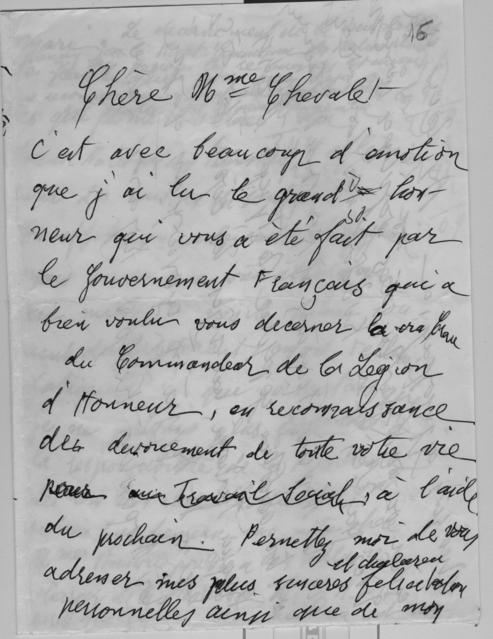 16
Chère Mme Chevalet
C'est avec beaucoup d'emotion
que j'ai lu le grand hon-
neur qui vous a été fait par
le Gouvernement Français qui a
bien voulu vous decerner la
du Commandeur de la Légion
d'Honneur, en reconnaissance
des devouement de toute votre vie
pour au Travail Social, à l'aide
du prochain. Permettez moi de vous
et chaleureu
adresser mes plus sinceres felicitation
personnelles ainsi que de mon